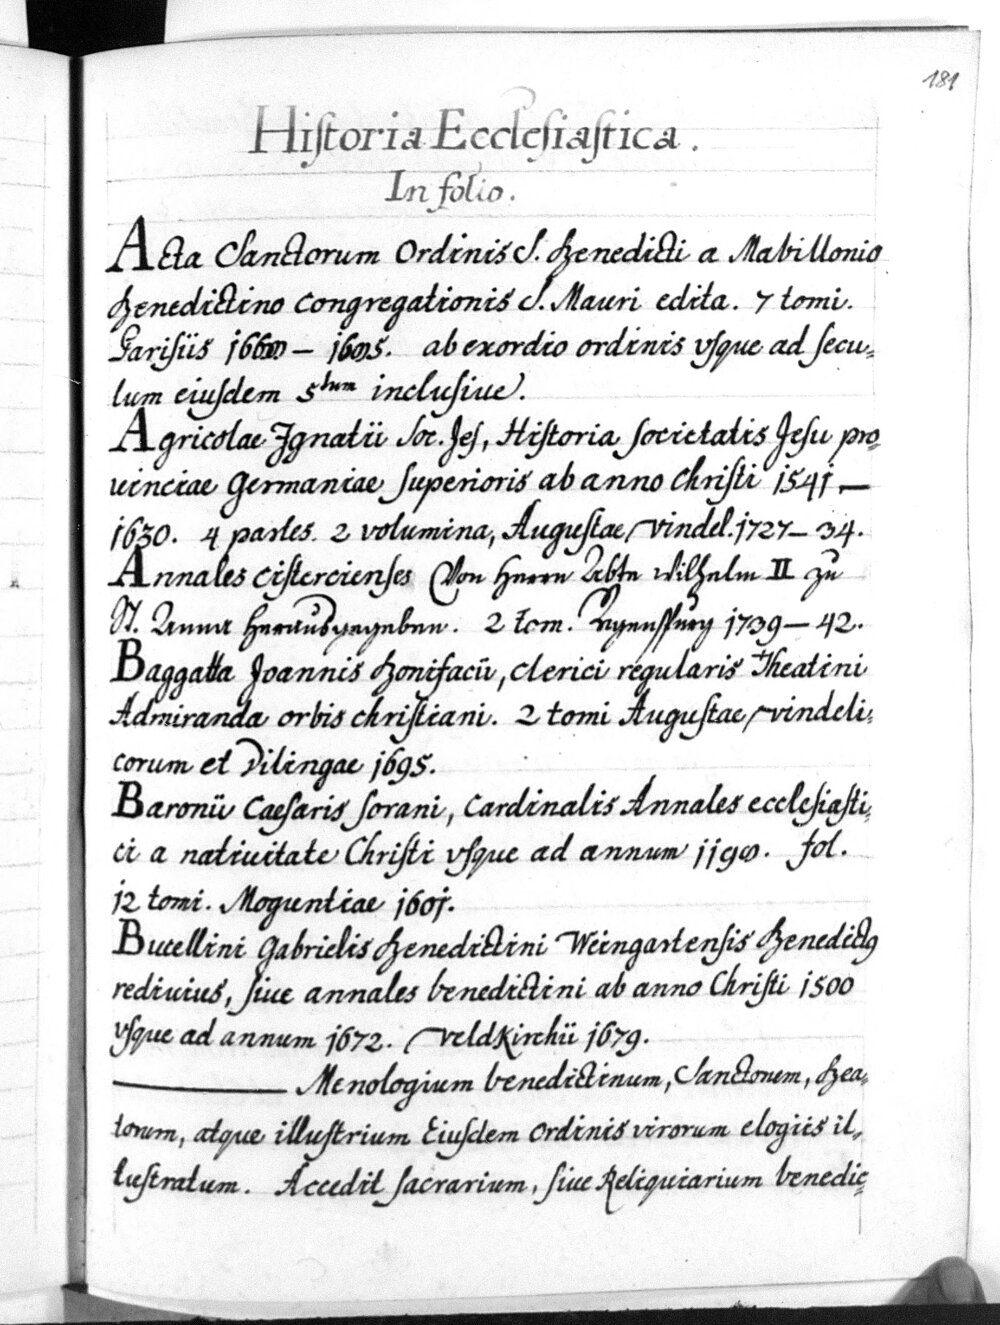 181
Historia Ecclesiastica.
In folio.
Acta Sanctorum Ordinis S. Benedicti a Mabillonio
Benedictino congregationis S. Mauri edita. 7 tomi.
Parisiis 1660 – 1695. ab exordio ordinis vsque ad secu-
lum eiusdem 5tum inclusiue.
Agricolae Ignatii Soc. Jes, Historia societatis Jesu pro-
uinciae Germaniae superioris ab anno Christi 1541 –
1630. 4 partes. 2 volumina, Augustae vindel. 1727 – 34.
Annales cistercienses Von Herrn Abte Wilhelm II zu
St. Anna herausgegeben. 2 tom. Regenspurg 1739 – 42.
Baggatta Joannis Bonifacii, clerici regularis Theatini
Admiranda orbis christiani. 2 tomi Augustae vindeli-
corum et Dilingae 1695.
Baronii Caesaris sorani, Cardinalis Annales ecclesiasti-
ci a natiuitate Christi vsque ad annum 1190. fol.
12 tomi. Moguntiae 1601.
Bucellini Gabrielis Benedictini Weingartensis Benedictus
rediuius, siue annales benedictini ab anno Christi 1500
vsque ad annum 1672. Veldkirchii 1679.
——— Menologium benedictinum, Sanctorum, Bea-
torum, atque illustrium Eiusdem Ordinis virorum elogiis il-
lustratum. Accedit sacrarium, siue Reliquiarium benedic-